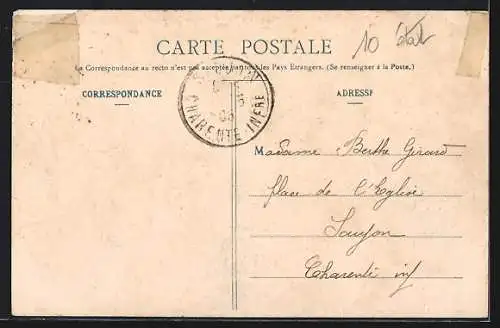 10 état
CARTE POSTALE
La Correspondance au recto n'est pas acceptée par tous les Pays Étrangers. (Se renseigner à la Poste.)
CORRESPONDANCE
ADRESSE
CHARENTE INFRE
Madame Berthe Girard
place de l'Eglise
Saujon
Charente inf